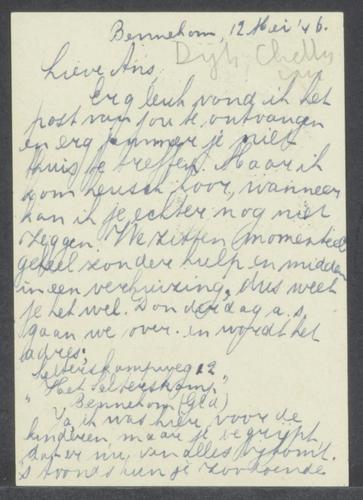 Bennekom, 12 Mei '46.
Dijk, Chelly
Lieve Ans,
Erg leuk vond ik het
post van jou te ontvangen
en erg jammer je niet
thuis te treffen. Maar ik
kom heusch hoor, wanneer
kan ik je echter nog niet
zeggen. We zitten momenteel
geheel zonder hulp en midden
in een verhuizing, dus weet
je het wel. Donderdag a.s.
gaan we over. en wordt het
adres:
Selterskampweg 12
"Het Selterskamp"
Bennekom (Gld)
Ja, ik was hier voor de
kinderen, maar je begrijpt
dat er nu van alles bijkomt.
's avonds kun je